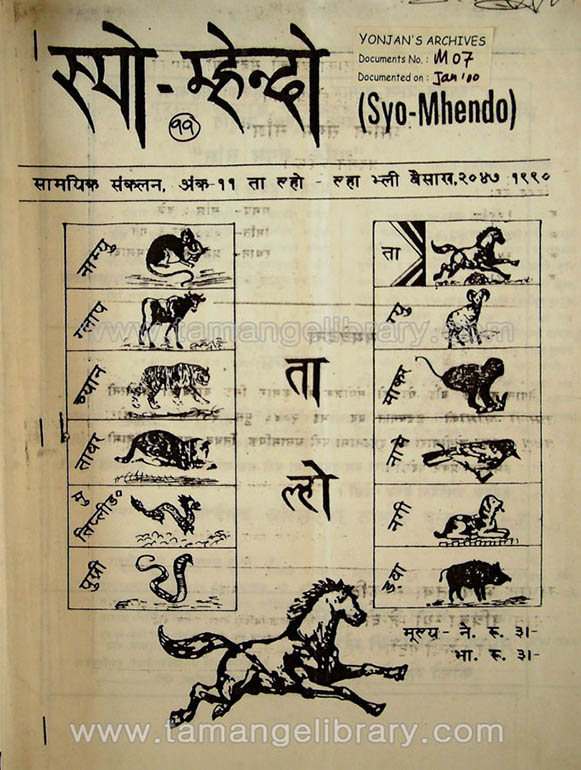 YONJAN'S ARCHIVES
Documents No. : M 07
Documented on : Jan '00
स्यो - म्हेन्दो
११
(Syo-Mhendo)
सामयिक संकलन, अंक-११ ता ल्हो - ल्हा भ्ली बैसाख, २०४७ १९९०
नाम्यु
ग्लाप
च्यान
तावर
मुप्री
ता
ल्हो
ता
ग्यु
माकर
नाम्ये
नगी
ड्वा
मूल्य - ने. रु. ३।-
भा. रु. ३।-
www.tamangelibrary.com
www.tamangelibrary.com